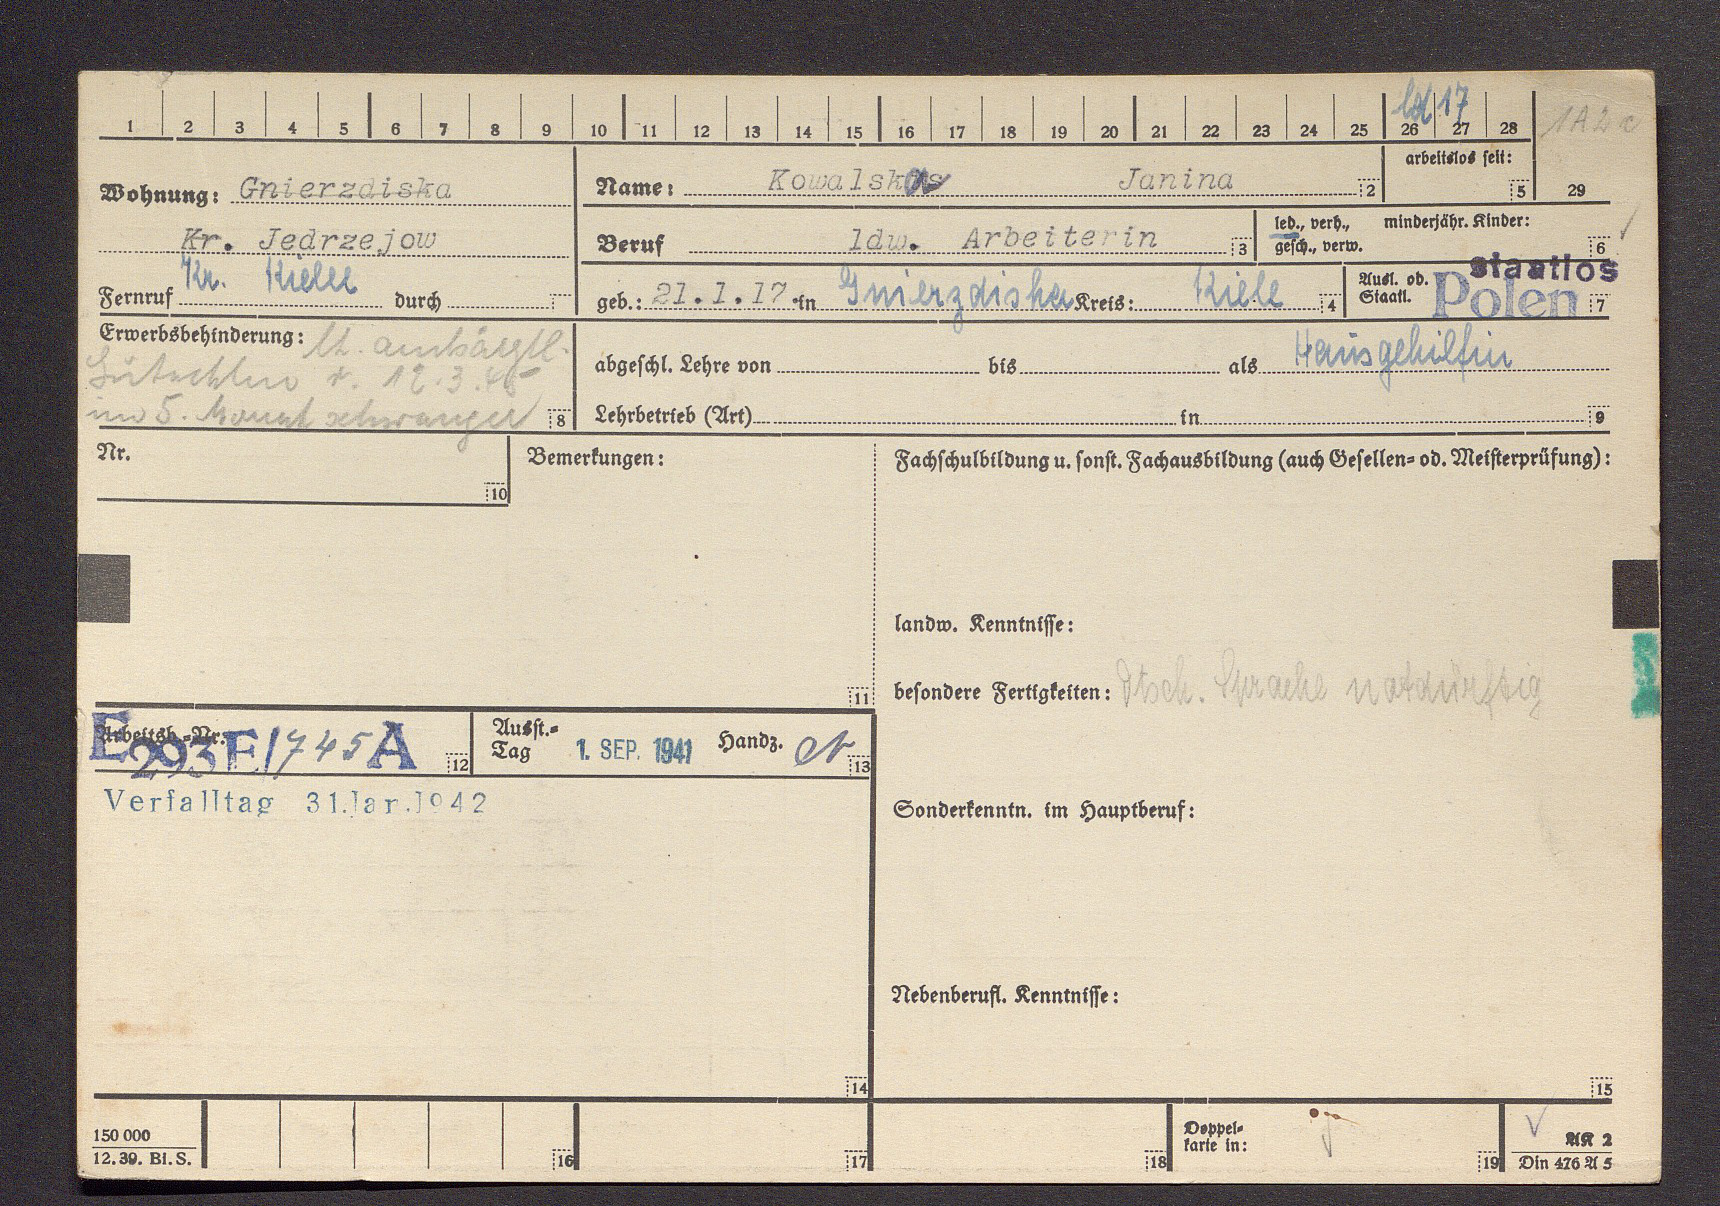 1 2 3 4 5 6 7 8 9 10 11 12 13 14 15 16 17 18 19 20 21 22 23 24 25 26 27 28
17
1A2c
29
Wohnung: Gnierzdiska
Kr. Jedrzejow
Kr. Kielce
Fernruf durch
Name: Kowalska Janina 2
arbeitslos seit: 5
Beruf ldw. Arbeiterin 3
led., verh., gesch., verw.
minderjähr. Kinder: 6
geb.: 21.1.17. in Gnierzdiska Kreis: Kiele 4
Ausl. od. Staatl. staatlos Polen 7
Erwerbsbehinderung: lt. amtsärztl.
Gutachten v. 12.3.
im 5. Monat schwanger 8
abgeschl. Lehre von bis als Hausgehilfin
Lehrbetrieb (Art) in 9
Nr. 10
Bemerkungen: 11
Fachschulbildung u. sonst. Fachausbildung (auch Gesellen= od. Meisterprüfung):
landw. Kenntnisse:
besondere Fertigkeiten: Dtsch. Sprache notdürftig
Arbeitsb.-Nr. E 293E/745A 12
Ausst.-Tag 1. SEP. 1941 Handz. 13
Verfalltag 31.Jan.1942
Sonderkenntn. im Hauptberuf:
Nebenberufl. Kenntnisse:
14
15
150 000
12. 39. Bl. S.
16
17
18
Doppel-
karte in: 19
AK 2
Din 476 A 5